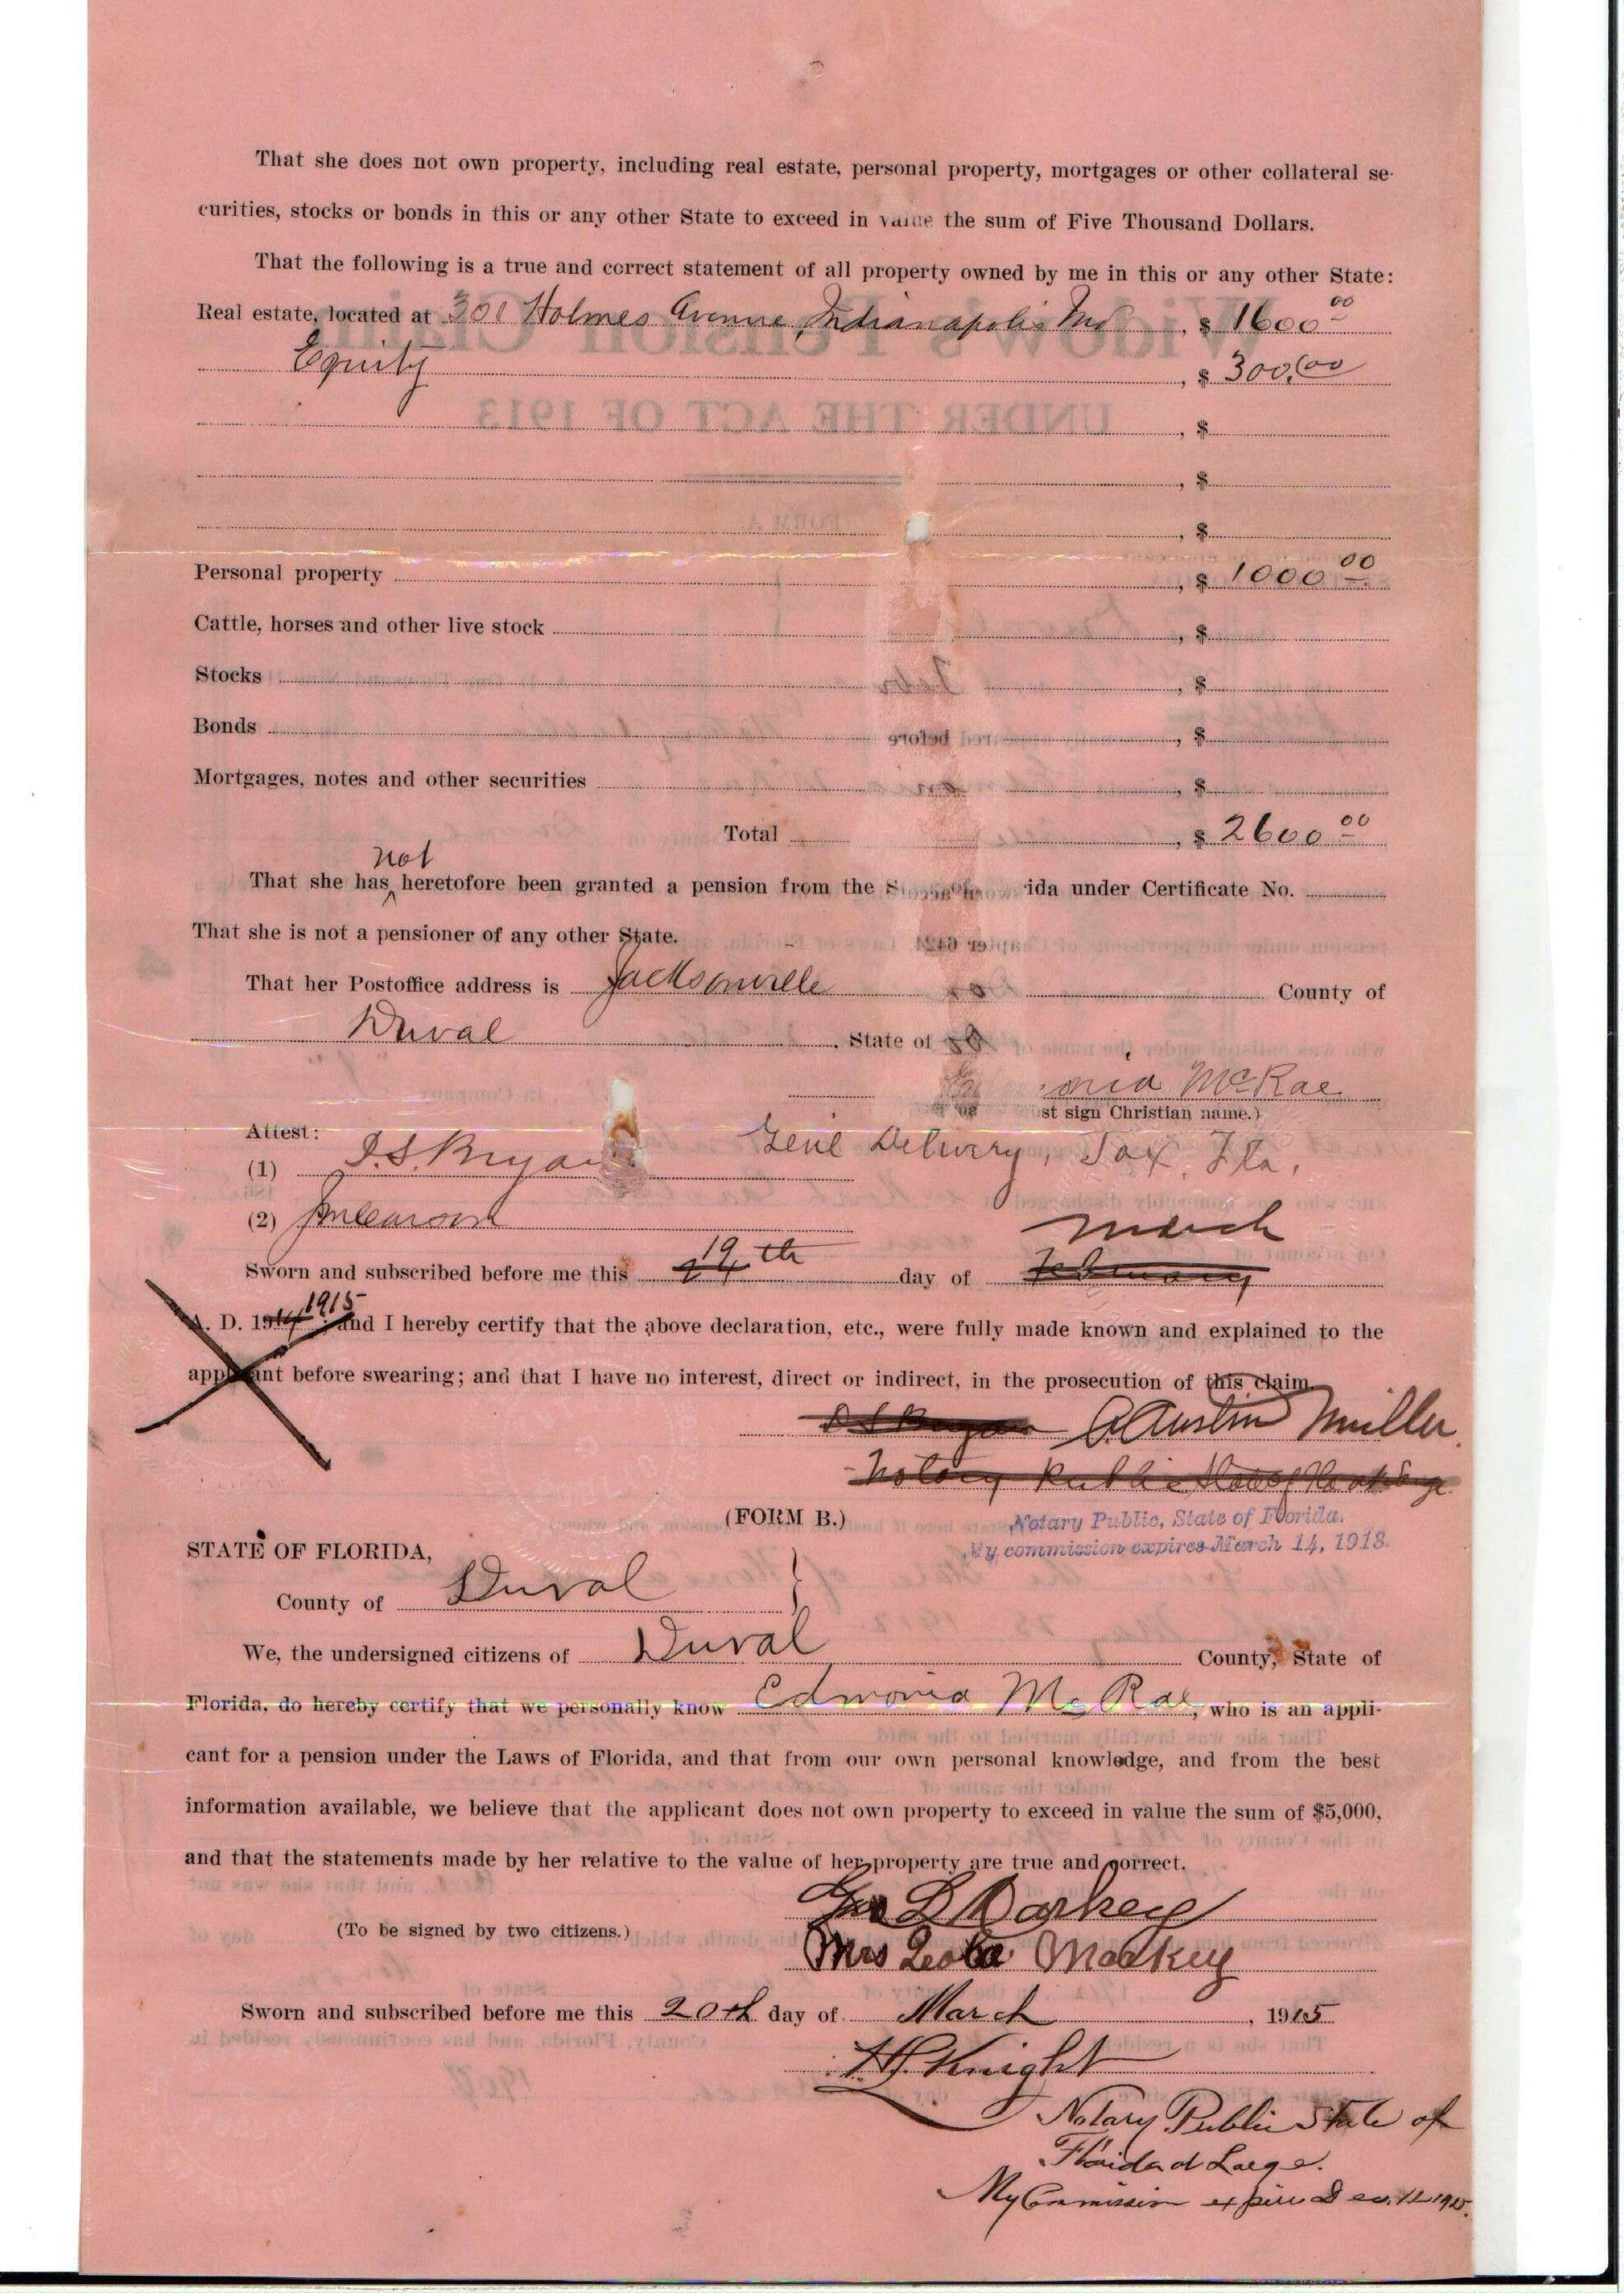 That she does not own property, including real estate, personal property, mortgages or other collateral se-
curities, stocks or bonds in this or any other State to exceed in value the sum of Five Thousand Dollars.
That the following is a true and correct statement of all property owned by me in this or any other State:
Real estate, located at 301 Holmes Avenue, Indianapolis Ind , $ 1600 00
Equity , $ 300.00
, $
, $
, $
Personal property , $ 1000 00
Cattle, horses and other live stock , $
Stocks , $
Bonds , $
Mortgages, notes and other securities , $
Total , $ 2600 00
not
That she has heretofore been granted a pension from the S ida under Certificate No.
That she is not a pensioner of any other State.
That her Postoffice address is Jacksonville County of
Duval , State of
onia McRae
st sign Christian name.)
Attest: Genl Delivery, Jax, Fla.
(1) I.S. Bryan
(2)
March
Sworn and subscribed before me this 19th day of February
A. D. 1914 1915 ; and I hereby certify that the above declaration, etc., were fully made known and explained to the
applicant before swearing; and that I have no interest, direct or indirect, in the prosecution of this claim.
A Austin Miller
Notary Public State of Fla at Large
(FORM B.)
Notary Public, State of Florida.
My commission expires March 14, 1918.
STATE OF FLORIDA,
County of Duval }
We, the undersigned citizens of Duval County, State of
Florida, do hereby certify that we personally know Edmonia McRae, who is an appli-
cant for a pension under the Laws of Florida, and that from our own personal knowledge, and from the best
information available, we believe that the applicant does not own property to exceed in value the sum of $5,000,
and that the statements made by her relative to the value of her property are true and correct.
Geo D
(To be signed by two citizens.)
Mrs Leola Mackey
Sworn and subscribed before me this 20th day of March , 1915
H. J. Knight
Notary Public State of
Florida at Large.
My Commission expires Dec. 12 1915.